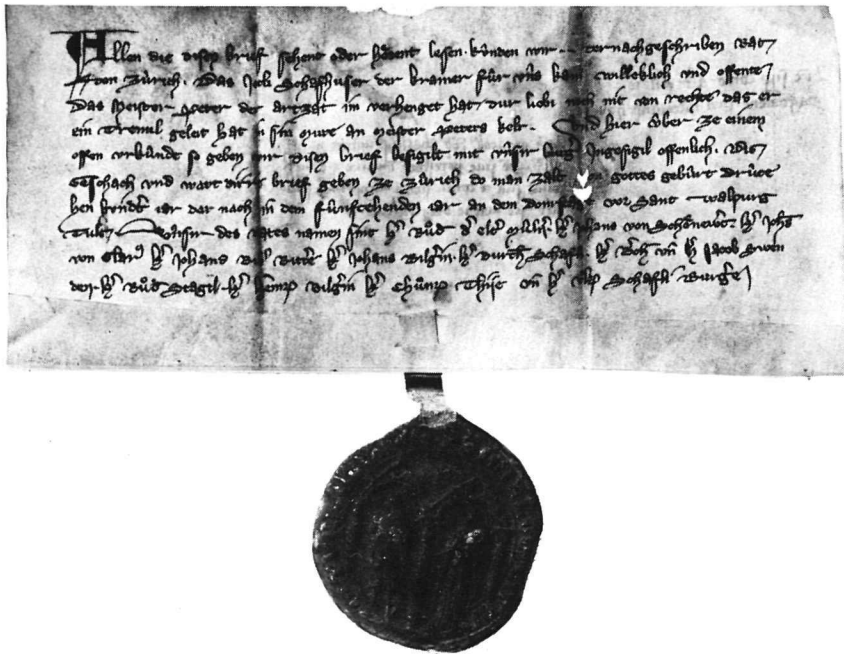 Allen die disen brief sehent oder hörent lesen. kúnden wir .. der nachgeschriben Rat
von Zúrich. Das Jacli Schafhuser der kramer fúr úns kam willeklich und offente
Das Meister Peter der artzat im verhenget hat, dur liebi noch nit von rechte das er
ein Tremil geleit hat in sin mure an meister Peters kelr. Und hier úber ze einem
offen urkúnde so geben wir disen brief besigilt mit únser burg Ingesigil offenlich. Dis
geschach und wart dirre brief geben ze Zúrich do man zalt von gottes gebúrt drúze
hen hundert iar dar nach in dem fúnfzehenden iar an dem Donrstage vor Sant Walpurg
Tult. Únser des rates namen sint her Růd der elr her Johans von Schönenwert. her Johs
von Glarus her Johans her Johans Bilgrin. her Burch Schafli. her und her Jacob Swen
der. her Růd Stagil. her Heinr Bilgrin her Chůnr Thije und her Schafli Burger